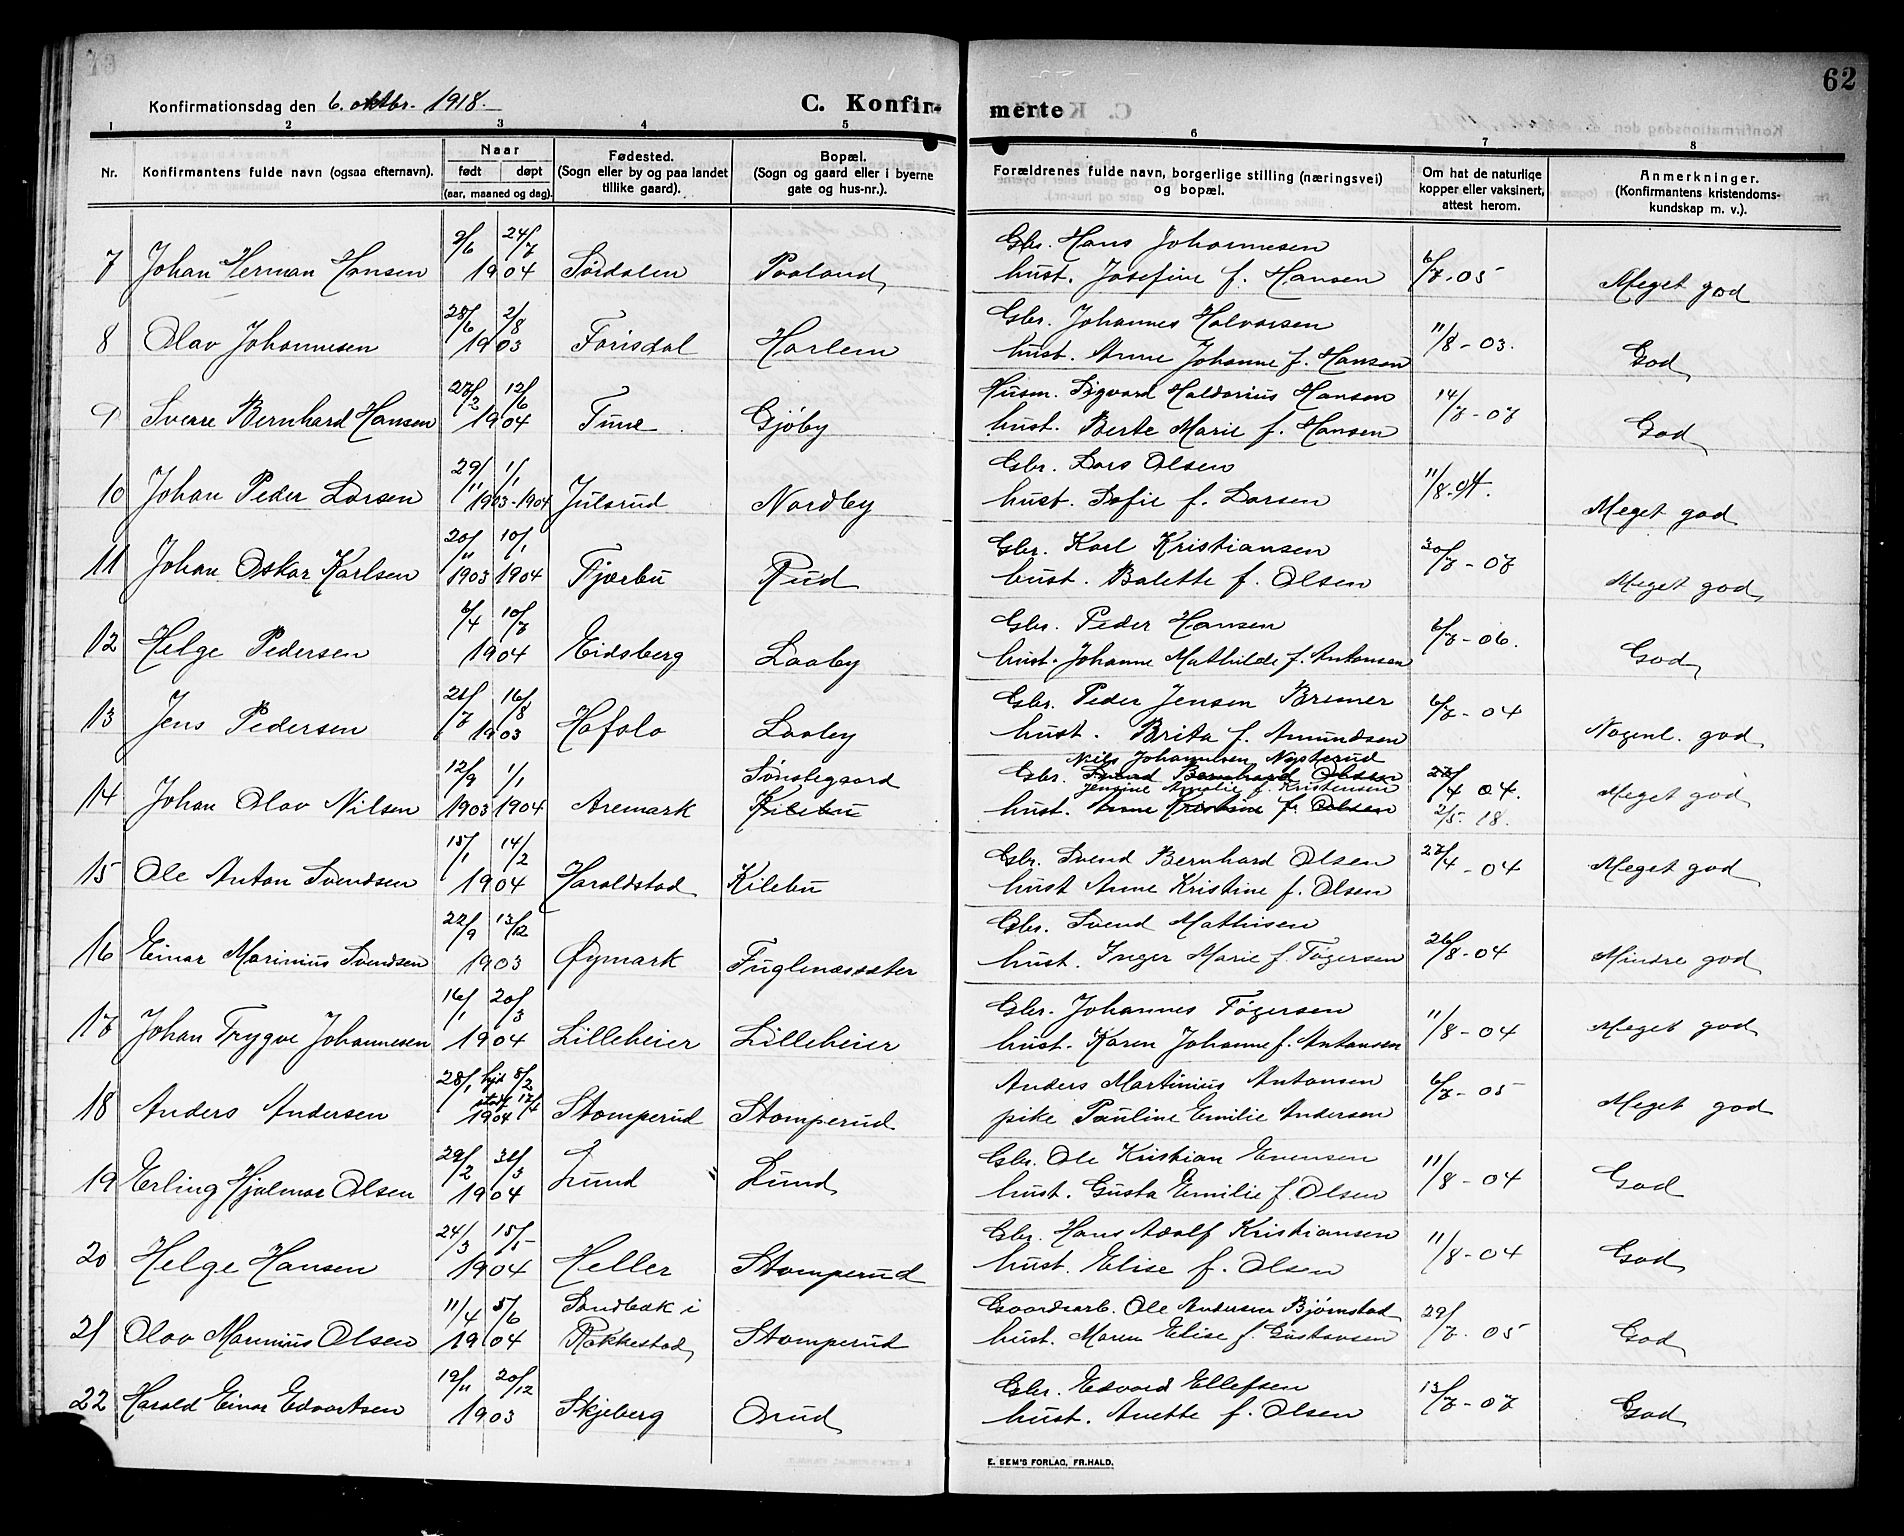 62
Konfirmationsdag den 6. oktbr. 1918.
C. Konfir-
merte
1 2 3 4 5 6 7 8
Nr.
Konfirmantens fulde navn (ogsaa efternavn).
Naar
født døpt
(aar, maaned og dag).
Fødested.
(Sogn eller by og paa landet
tillike gaard).
Bopæl.
(Sogn og gaard eller i byerne
gate og hus-nr.).
Forældrenes fulde navn, borgerlige stilling (næringsvei)
og bopæl.
Om hat de naturlige
kopper eller vaksinert,
attest herom.
Anmerkninger.
(Konfirmantens kristendoms-
kundskap m. v.).
9/6 24/7 Gbr. Hans Johannesen
7 Johan Herman Hansen 1904 Sørdalen Paaland hust. Josefine f. Hansen 6/7-05 Meget god
28/6 2/8 Gbr. Johannes Halvorsen
8 Olav Johannesen 1903 Torisdal Harlem hust. Anne Johanne f. Hansen 11/8-03. God
27/2 12/6 Husm. Sigvard Haldorius Hansen
9 Sverre Bernhard Hansen 1904 Tune Gjøby hust. Berte Marie f. Hansen 14/7-07 God
29/11 1/1 Gbr. Lars Olsen
10 Johan Peder Larsen 1903-1904 Julsrud Nordby hust. Sofie f. Larsen 11/8.04. Meget god
20/11 10/1 Gbr. Karl Kristiansen
11 Johan Oskar Karlsen 1903 1904 Fjærbu Rud hust. Balette f. Olsen 30/7-07 Meget god
6/4 10/7 Gbr. Peder Hansen
12 Helge Pedersen 1904 Eidsberg Laaby hust. Johanne Mathilde f. Antonsen 6/7-06. God
21/7 16/8 Gbr. Peder Jensen Bremer
13 Jens Pedersen 1903 Hafslo Laaby hust. Brita f. Amundsen 6/7-04 Nogenl. god
Nils Johannesen Nysterud
12/9 1/1 Sønstegaard Gbr. Svend Bernhard Olsen
Jensine Amalie f. Kristensen
14 Johan Olav Nilsen 1903 1904 Aremark Kilebu hust. Anne Kristine f. Olsen 27/4 04. Meget god
2/5. 18.
15/1 14/2 Gbr. Svend Bernhard Olsen
15 Ole Anton Svendsen 1904 Haraldstad Kilebu hust Anne Kristine f. Olsen 27/4-04 Meget god
22/9 13/12 Gbr. Svend Mathisen
16 Einar Marinius Svendsen 1903 Øymark Fuglenæssæter hust. Inger Marie f. Tøgersen 26/8-04 Mindre god
16/1 20/3 Gbr. Johannes Tøgersen
17 Johan Trygve Johannesen 1904 Lilleheier Lilleheier hust. Karen Johanne f. Antonsen 11/8-04 Meget god
28/1 hjd 5/2 Anders Martinius Antonsen
stadf. 17/4
18 Anders Andersen 1904 Stomperud Stomperud pike Pauline Emilie Andersen 6/7-05 Meget god
29/2 31/3 Gbr. Ole Kristian Evensen
19 Erling Hjalmar Olsen 1904 Lund Lund hust. Gusta Emilie f. Olsen 11/8-04 God
24/3 15/5 Gbr. Hans Adolf Kristiansen
20 Helge Hansen 1904 Heller Stomperud hust. Elise f. Olsen 11/8-04 God
11/4 5/6 Sandbæk i Gaardsarb. Ole Andersen Bjørnstad
21 Olav Marinius Olsen 1904 Rakkestad Stomperud hust. Maren Elise f. Gustavsen 29/7. 05 God
19/11 20/12 Gbr. Edvard Ellefsen
22 Harald Einar Edvartsen 1903 Skjeberg Orud hust. Anette f. Olsen 13/7-07 God
E. SEM'S FORLAG, FR.HALD.